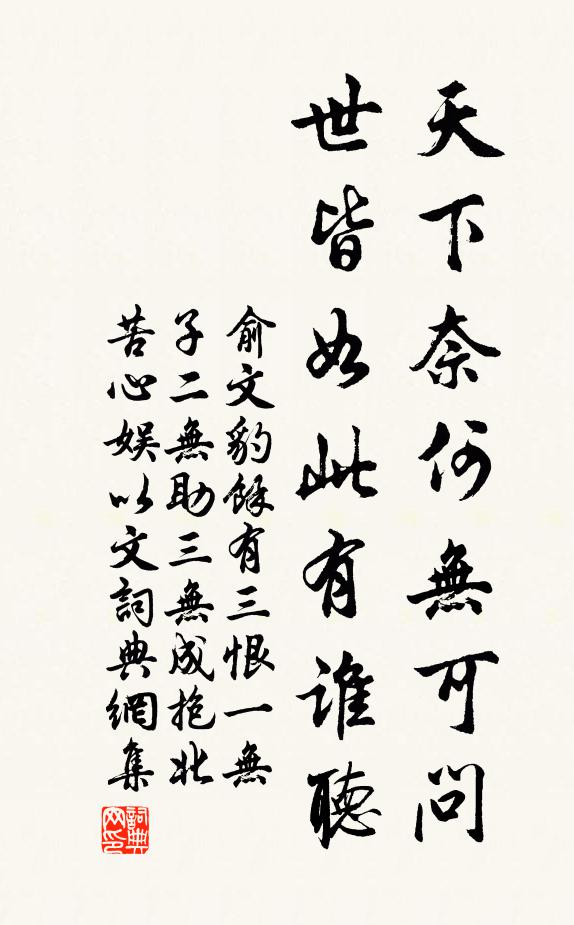 天下奈何無可問
世皆如此有誰聽
俞文豹餘有三恨一無
子二無助三無成抱北
苦心娱以文詞典網集
詞典
网印